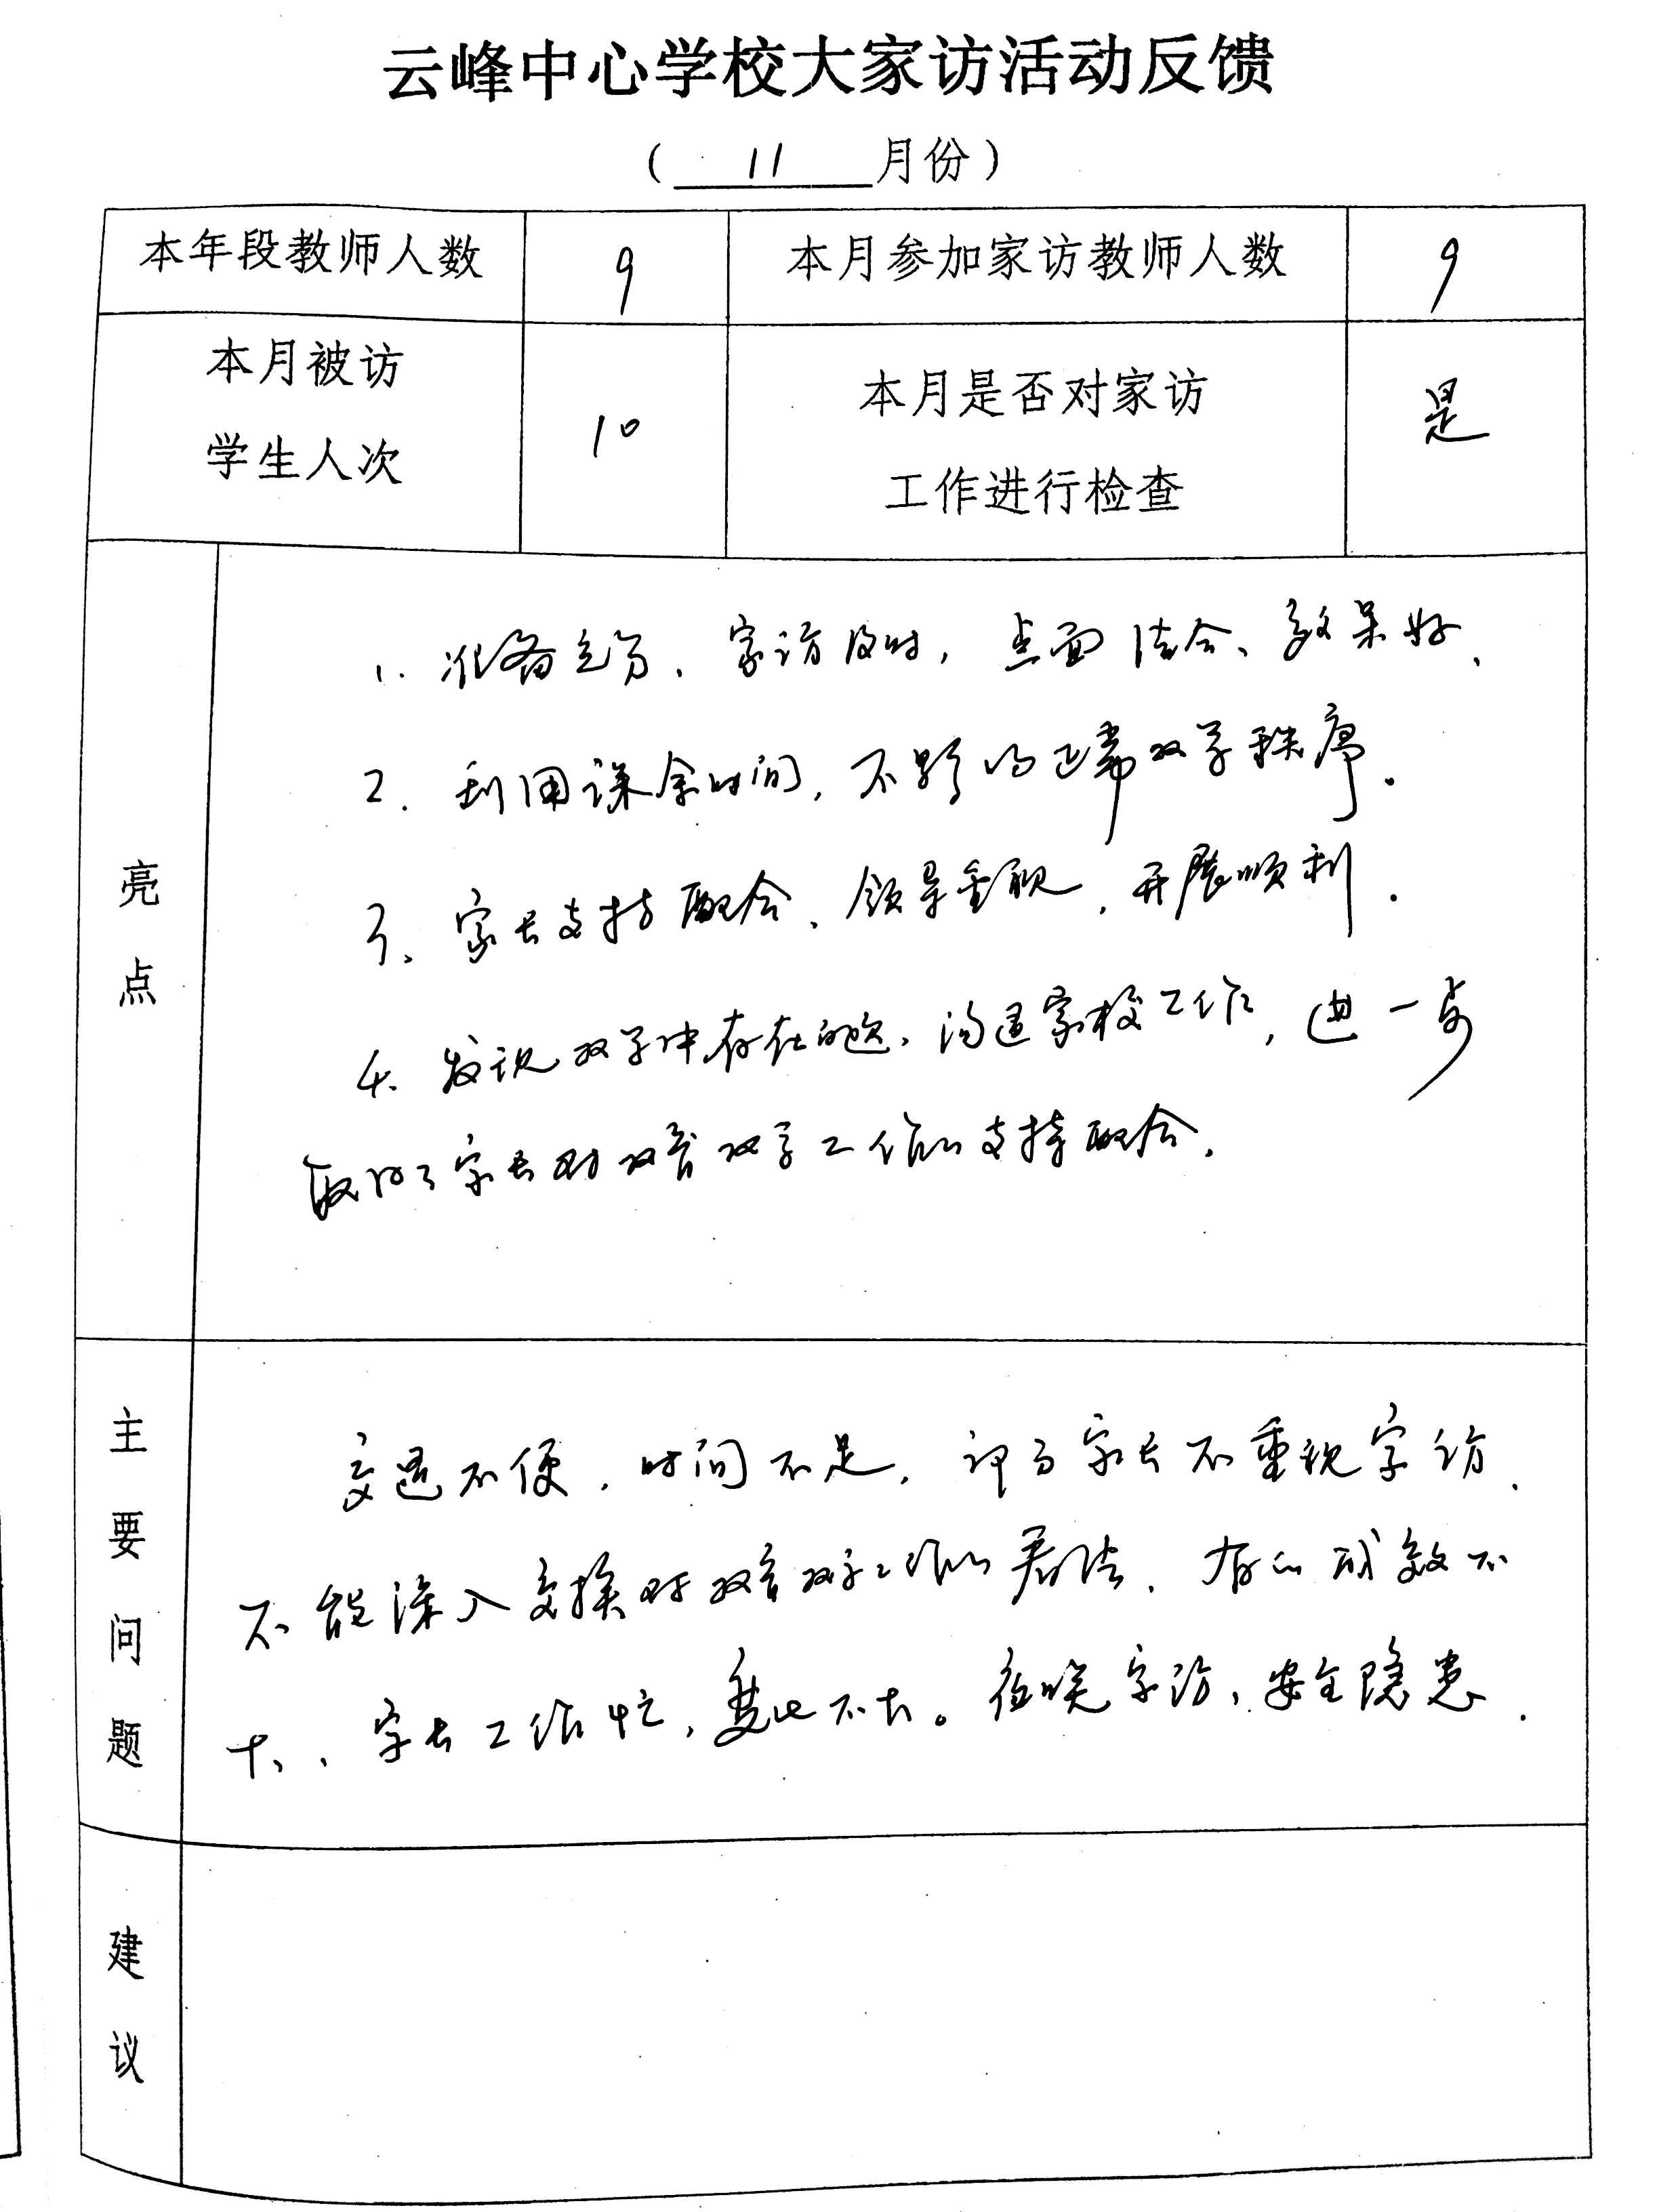 云峰中心学校大家访活动反馈
（ 11 月份）
本年段教师人数 9 本月参加家访教师人数 9
本月被访
学生人次 10
本月是否对家访
工作进行检查 是
亮点
1. 准备充分、家访及时，点面结合、效果好、
2. 利用课余时间，不影响正常教学秩序.
3、家长支持配合、领导重视，开展顺利.
4. 发现教学中存在问题、沟通家校工作，进一步
取得了家长对教育教学工作的支持配合.
主要问题
交通不便，时间不足，部分家长不重视家访.
不能深入交换对教育教学工作的看法、有的成效不
大、家长工作忙，不大。夜晚家访、安全隐患.
建议